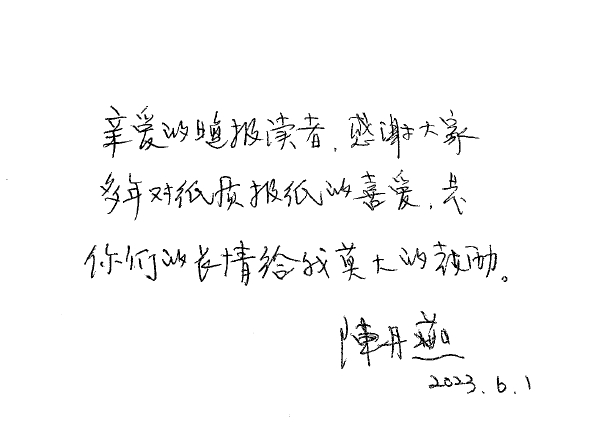 亲爱的晚报读者，感谢大家
多年对纸质报纸的喜爱，是
你们的长情给我莫大的鼓励。
陳丹燕
2023.6.1